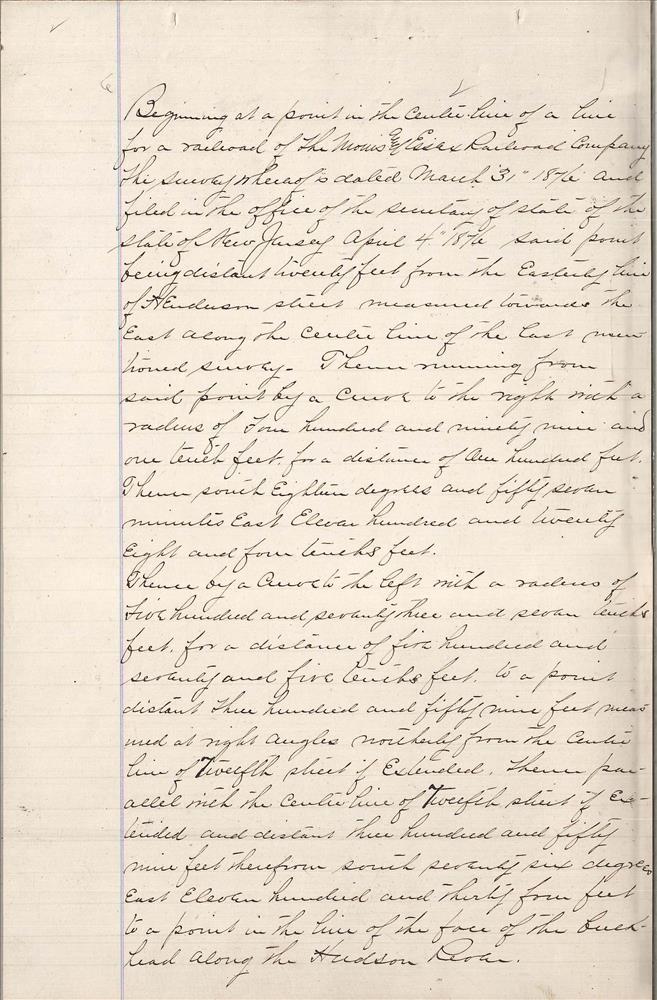 Beginning at a point in the centre line of a line
for a railroad of the Morris and Essex Railroad Company
the survey whereof is dated March 31" 1876 and
filed in the office of the secretary of state of the
state of New Jersey April 4" 1876 said point
being distant twenty feet from the Easterly line
of Henderson street measured towards the
East along the centre line of the last men
tioned survey - Thence running from
said point by a curve to the right with a
radius of Four hundred and ninety nine and
one tenth feet. for a distance of One hundred feet.
Thence south Eighteen degrees and fifty seven
minutes East Eleven hundred and twenty
Eight and four tenths feet.
Thence by a Curve to the left with a radius of
Five hundred and seventy three and seven tenths
feet. for a distance of five hundred and
seventy and five tenths feet. to a point
distant three hundred and fifty nine feet meas
ured at right angles northerly from the centre
line of Twelfth street if Extended. Thence par-
allel with the centre line of Twelfth street if Ex-
tended and distant three hundred and fifty
nine feet therefrom south seventy six degrees
East Eleven hundred and thirty four feet
to a point in the line of the face of the bulk-
head along the Hudson River.